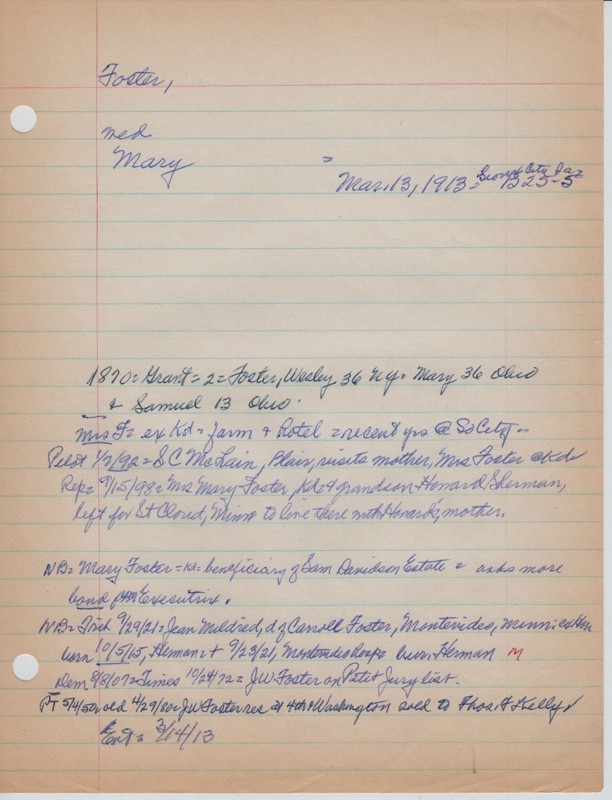 Foster,
med
Mary =
Mar. 13, 1913 = City
1325-5
1870 = Grant = 2 = Foster, Wesley 36 NY = Mary 36 Ohio
& Samuel 13 Ohio.
Mrs F = ex Kd = farm & Hotel = recent yrs @ So City =
Pilot 1/2/92 = S C McLain, Blair, visits mother, Mrs Foster @ Kd
Rep = 9/15/98 = Mrs Mary Foster, Kd & grandson Howard Sherman,
left for St Cloud, Minn to live there with Howard's mother.
NB = Mary Foster = Kd = beneficiary of Sam Davidson Estate = asks more
bond Executrix.
NB = 9/29/21 = Jean Mildred, d of Carroll Foster, Montevideo, Minn:
born 10/5/15, Herman = + 9/23/21, bur. Herman
Dem 8/8/07 = Times 10/24/72 = JW Foster on Petit Jury list.
PT 5/4/50, old 4/29/80 = JW Foster res at 4th & Washington sold to Thos. F Kelly
Ent = 3/14/13